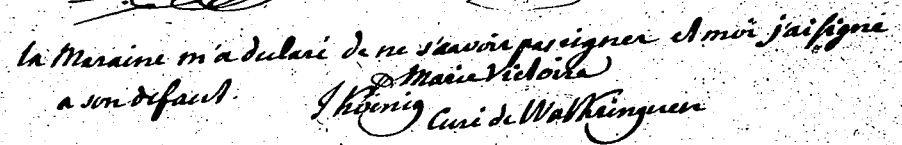 la Maraine m'a declaré de ne sçavoir pas signer et moi j'ai signé
a son defaut.
D Marie Victoire
J Köenig Curé de Walkringuen